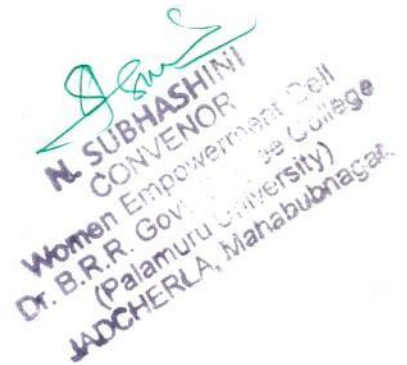 N. SUBHASHINI
CONVENOR
Women Empowerment Cell
Dr. B.R.R. Gov ee College
(Palamuru University)
JADCHERLA, Mahabubnagar.